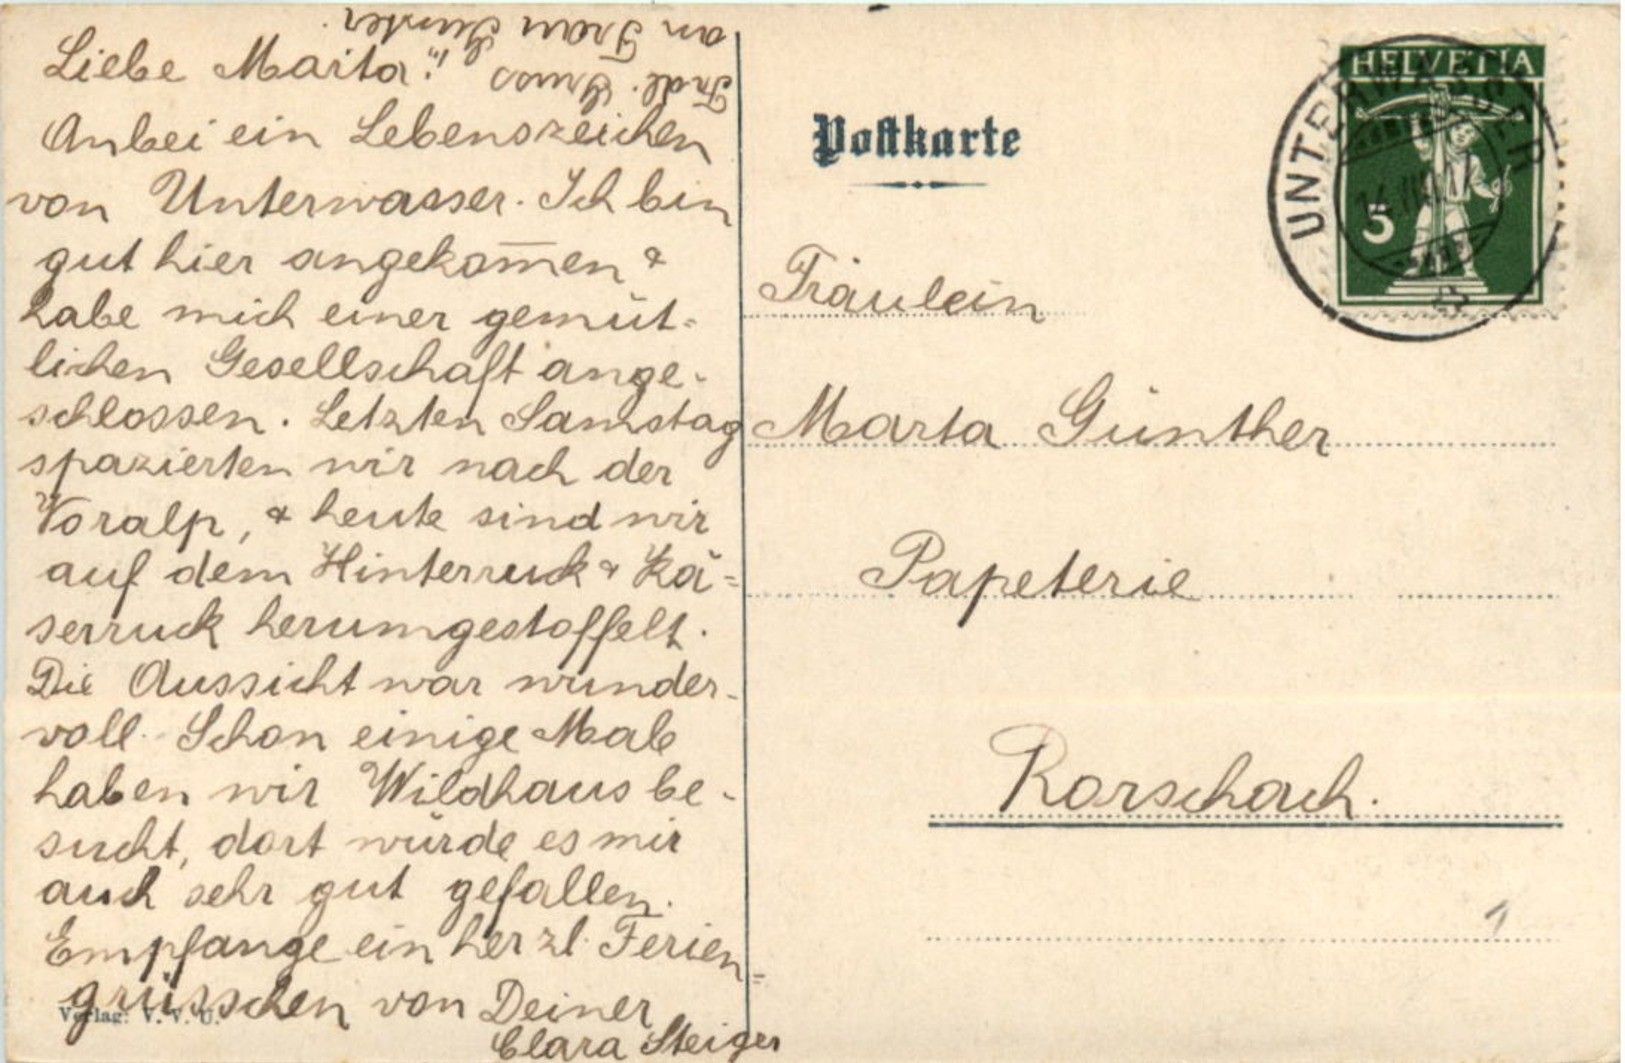 Liebe Marta!!!
Anbei ein Lebenszeichen
von Unterwasser. Ich bin
gut hier angekom̅en &
habe mich einer gemüt-
lichen Gesellschaft ange-
schlossen. Letzten Samstag
spazierten wir nach der
Voralp, & heute sind wir
auf dem Hinterruck & Kä-
serruck herumgestoffelt.
Die Aussicht war wunder-
voll. Schon einige Male
haben wir Wildhaus be-
sucht, dort würde es mir
auch sehr gut gefallen.
Empfange ein herzl. Ferien-
grüsschen von Deiner
Clara Steiger
Frdl. Gruss
an Frau
Verlag: V. V. U.
Postkarte
HELVETIA
5
UNTERWASSER
Fräulein
Marta Günther
Papeterie
Rorschach.
1